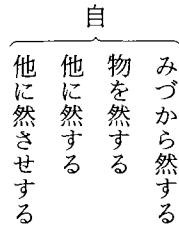 自
みづから然する
物を然する
他に然する
他に然させする